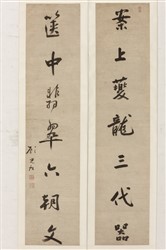 案上夔龍三代器
篋中翡翠六朝文